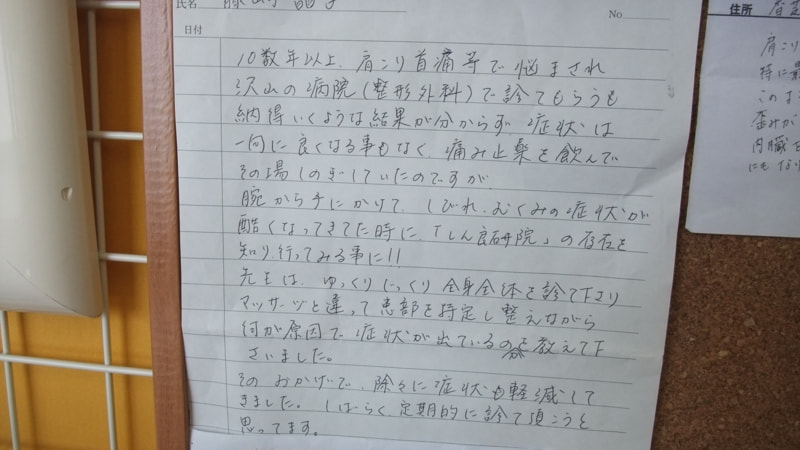 氏名
No
日付
10数年以上、肩こり首痛等で悩まされ
沢山の病院(整形外科)で診てもらうも
納得いくような結果が分からず、症状は
一向に良くなる事もなく、痛み止薬を飲んで
その場しのぎしていたのですが、
腕から手にかけて、しびれ、むくみの症状が
酷くなってきてた時に、「しん良研院」の存在を
知り、行ってみる事に!!
先生は、ゆっくりじっくり全身全体を診て下さり
マッサージと違って患部を特定し整えながら
何が原因で症状が出ているのを教えて下
さいました。
そのおかげで、除々に症状も軽減して
きました。しばらく定期的に診て頂こうと
思ってます。
住所
肩こり
特に最
このま
歪みが
内臓を
にもな